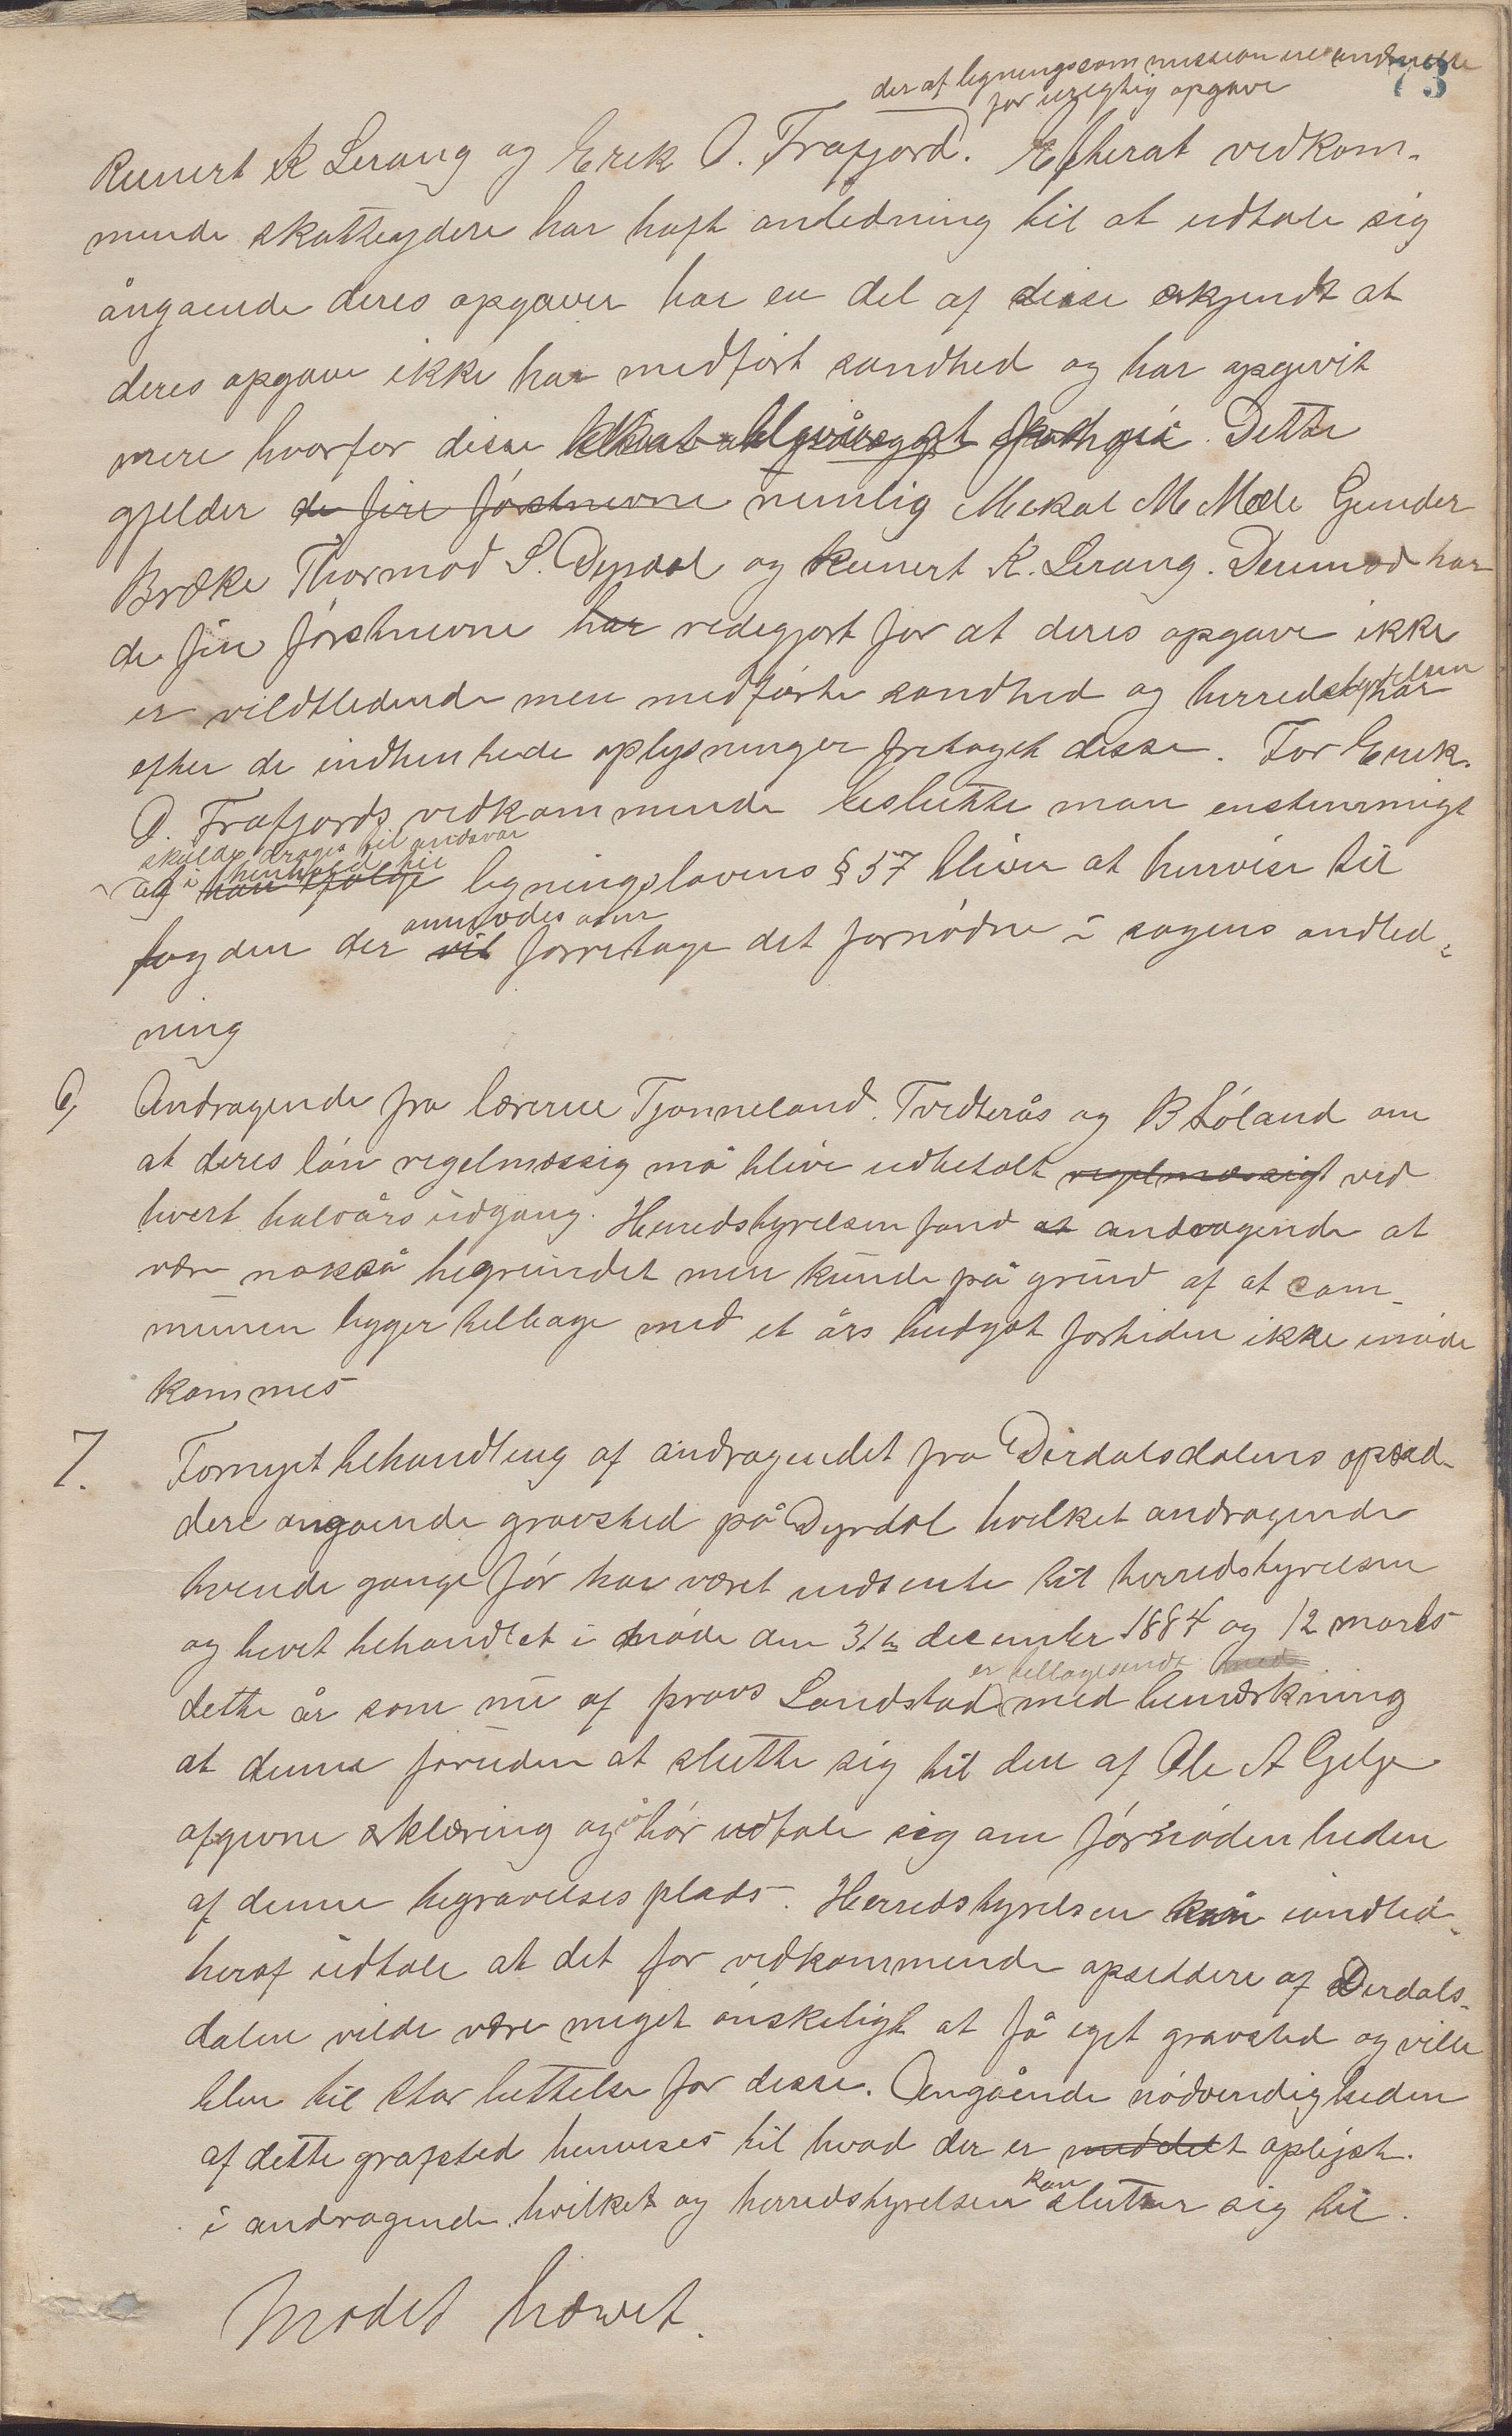 73
der af ligningscommissionen
for urigtig opgave
Reinert K Lerang og Erik O. Frafjord. Efterat vedkom-
mende skatteydere har haft anledning til at udtale sig
ångaende deres opgaver har en del af disse erkjendt at
deres opgave ikke har medført sandhed og har opgivit
mere hvorfor disse Dette
gjelder de fire førstnevne nemlig Mikal M Mæle Gunder
Bræke Thormod S. Dyrdal og Reinert K. Lerang. Derimod har
de førstnevne har redegjort for at deres opgave ikke
er vildtledende men medførte sandhed og herredstyrelsen har
efter de indhentede oplysninger fritaget disse. For Erik
O. Frafjords vedkommende beslutte man enstemmigt
skulde drages til andsvar
at i henhold til ligningslovens § 57 bliver at henvise til
anmodes om
fogden der vil forretage det fornødne i sagens andled-
ning
6, Andragende fra lærerne Tjønneland. Tvedterås og B Løland om
at deres løn regelmæssig må blive udbetalt regelmæssigt ved
hvert halvårs udgang. Herredstyrelsen fand at andragende at
være nokså begrundet men kunde på grund af at com-
munen ligger tilbage med et års budget fortiden ikke imøde
kommes
7. Fornyet behandling af andragendet fra Dirdalsdalens opsid-
dere angaende gravsted på Dyrdal hvilket andragende
tvende gange før har været indsente til herredstyrelsen
og hevet behandlet i møde den 31te december 1884 og 12 marts
er tilbagesendt med
dette år som nu af provs Landstad med bemærkning
at denne foruden at slutte sig til den af Ole A Gilje
afgivne erklæring også bør udtale sig om fornødenheden
af denne begravelsesplads. Herredstyrelsen kan iandled-
heraf udtale at det for vedkommende opsiddere af Dirdals-
dalen vilde være meget ønskeligt at få eget gravsted og ville
blive til stor lettelse for disse. Angående nødvendigheden
af dette grafsted henvises til hvad der er meddelt oplyst.
kan
i andragende hvilket og herredstyrelsen slutter sig til.
Mødet hævet.